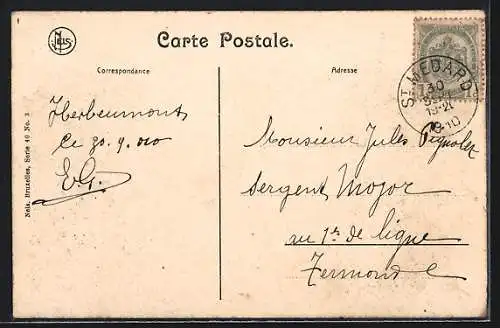 NELS
Carte Postale.
Correspondance
Adresse
ST MEDARD
30
SEPT
19-20
1910
1c
Herbeumont
Ce 30.9.010
E.G.
Monsieur Jules Pignolet
Sergent Major
au 1er de ligne
Termonde
Nels, Bruxelles, Serie 40 No. 3